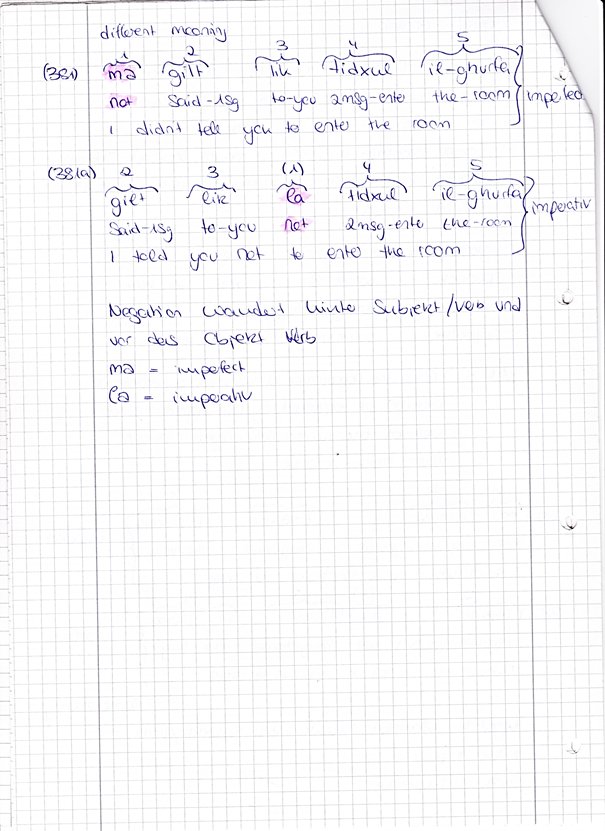 different meaning
1 2 3 4 5
(381) mə gilt lik tidxul il-ghurfa
not said-1sg to-you 2msg-enter the-room imperfect
I didn't tell you to enter the room
(381a) 2 3 (1) 4 5
gilt lik la tidxul il-ghurfa
said-1sg to-you not 2msg-ente the-room imperativ
I told you not to enter the room
Negation wandert hinter Subjekt/Verb und
vor das Objekt Verb
mə = imperfect
la = imperativ